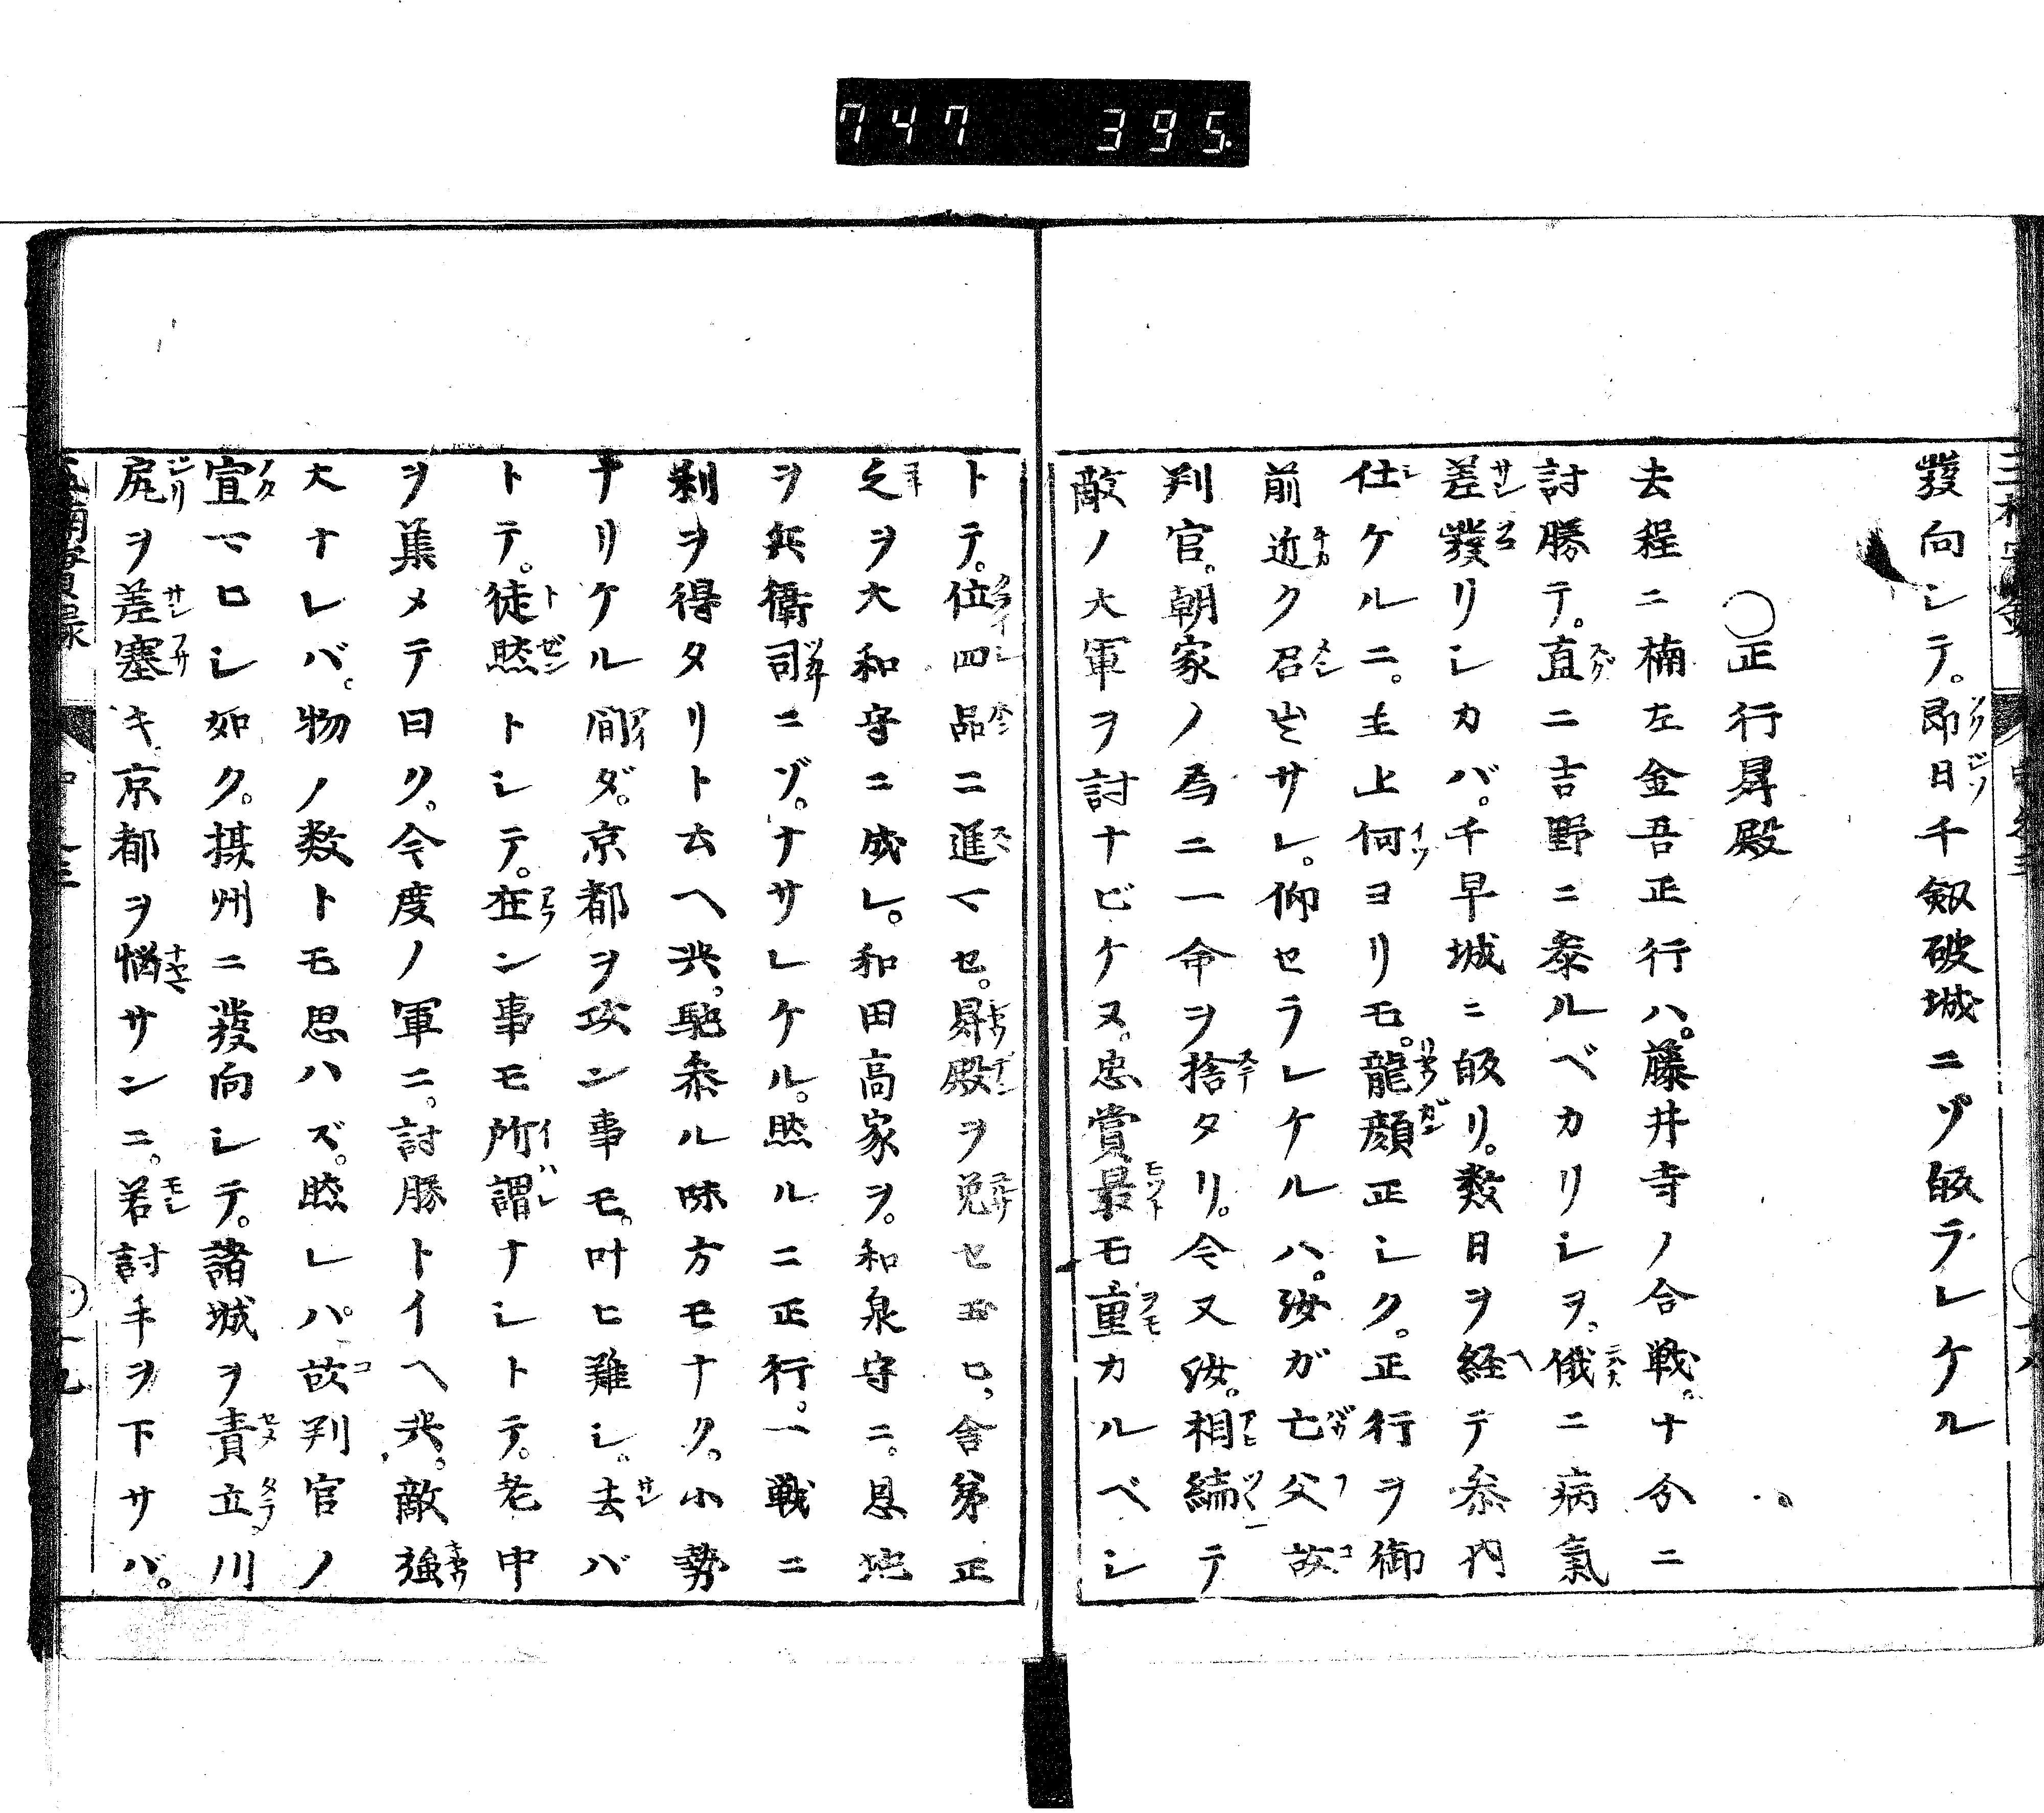 747 395
發向シテ。即日千剱破城ニゾ皈ラレケル
〇正行昇殿
去程ニ楠左金吾正行ハ。藤井寺ノ合戦。ナ分ニ
討勝テ。直ニ吉野ニ参ルベカリシヲ。俄ニ病氣
差發リシカバ。千早城ニ皈リ。数日ヲ経テ参内
仕ケルニ。主上何ヨリモ。龍顔正シク。正行ヲ御
前近ク召サレ。仰セラレケルハ。汝ガ亡父故
判官。朝家ノ為ニ一命ヲ捨タリ。今又汝。相續テ
敵ノ大軍ヲ討ナビケヌ。忠賞最モ重カルベシ
トテ。位四品ニ進マセ。昇殿ヲ免セ玉ヒ、舎弟正
之ヲ大和守ニ成レ。和田高家ヲ。和泉守ニ。恩地
ヲ兵衛司ニゾ。ナサレケル。然ルニ正行。一戦ニ
利ヲ得タリト云ヘ共。馳参ル味方モナク。小勢
ナリケル間ダ。京都ヲ攻ン事モ。叶ヒ難シ。去バ
トテ。徒然トシテ。在ン事モ所謂ナシトテ。老中
ヲ集メテ曰ク。今度ノ軍ニ。討勝トイヘ共。敵強
大ナレバ。物ノ数トモ思ハズ。然レバ。故判官ノ
宣マヒシ如ク。摂州ニ發向シテ。諸城ヲ責立。川
尻ヲ差塞キ。京都ヲ悩サンニ。若討手ヲ下サバ。